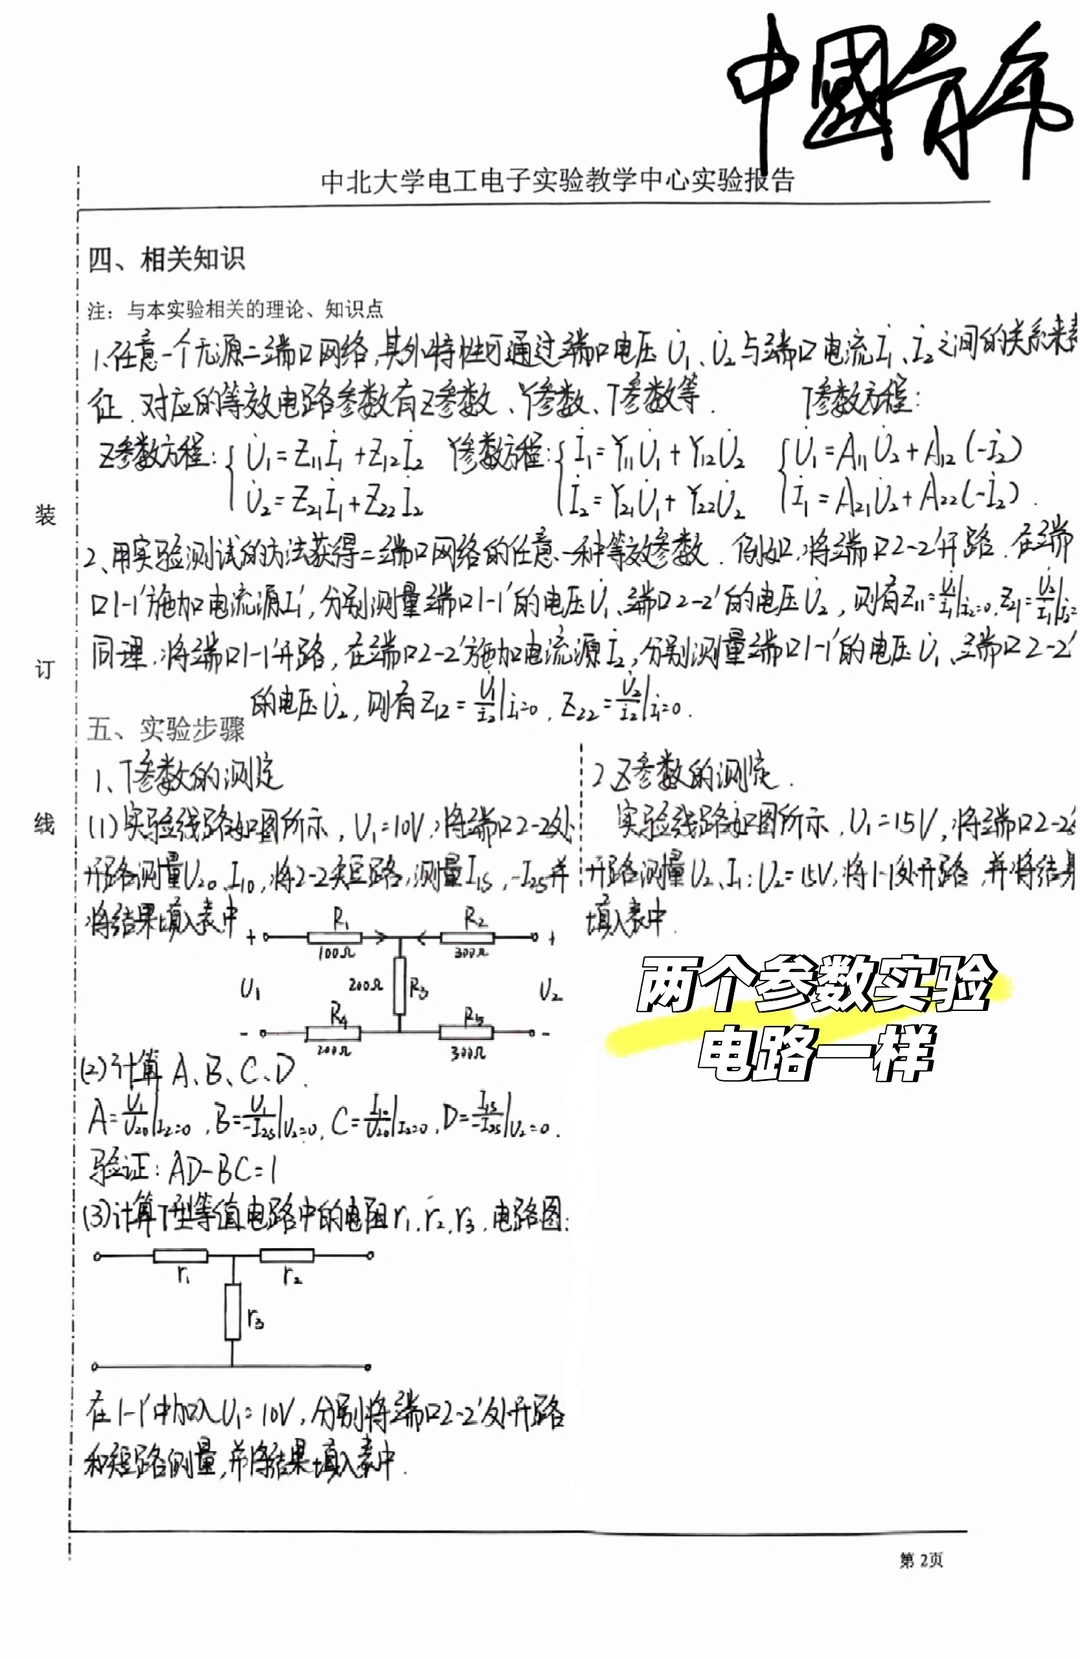 中國青年
中北大学电工电子实验教学中心实验报告
四、相关知识
注：与本实验相关的理论、知识点
1.任意一个无源二端口网络,其外特性可通过端口电压 U̇₁、U̇₂ 与端口电流 İ₁、İ₂ 之间的关系来表
征.对应的等效电路参数有Z参数、Y参数、T参数等. T参数方程:
Z参数方程:{U̇₁=Z₁₁İ₁+Z₁₂İ₂ Y参数方程:{İ₁=Y₁₁U̇₁+Y₁₂U̇₂ {U̇₁=A₁₁U̇₂+A₁₂(-İ₂)
U̇₂=Z₂₁İ₁+Z₂₂İ₂ İ₂=Y₂₁U̇₁+Y₂₂U̇₂ İ₁=A₂₁U̇₂+A₂₂(-İ₂).
2、用实验测试的方法获得二端口网络的任意一种等效参数.例如,将端口2-2'开路.在端
口1-1'施加电流源İ₁',分别测量端口1-1'的电压U̇₁、端口2-2'的电压U̇₂,则有Z₁₁=U̇₁/İ₁|İ₂=0,Z₂₁=U̇₂/İ₁|İ₂=
同理,将端口1-1'开路,在端口2-2'施加电流源İ₂,分别测量端口1-1'的电压U̇₁、端口2-2'
的电压U̇₂,则有Z₁₂=U̇₁/İ₂|İ₁=0,Z₂₂=U̇₂/İ₂|İ₁=0.
五、实验步骤
1、T参数的测定
(1)实验线路如图所示,U₁=10V,将端口2-2处
开路测量U₂₀、I₁₀,将2-2处短路,测量I₁ₛ、-I₂ₛ并
将结果填入表中
+ R₁ R₂ +
100Ω 300Ω
U₁ 200Ω R₃ U₂
- R₄ R₅ -
200Ω 300Ω
(2)计算A、B、C、D.
A=U₁/U₂₀|I₂=0,B=U₁/-I₂ₛ|U₂=0,C=I₁₀/U₂₀|I₂=0,D=I₁ₛ/-I₂ₛ|U₂=0.
验证:AD-BC=1
(3)计算T型等值电路中的电阻r₁,r₂,r₃,电路图:
r₁ r₂
r₃
在1-1'中加入U₁=10V,分别将端口2-2'处开路
和短路测量,并将结果填入表中.
2.Z参数的测定.
实验线路如图所示,U₁=15V,将端口2-2处
开路测量U₂、I₁;U₂=15V,将1-1处开路,并将结果
填入表中.
两个参数实验
电路一样
装
订
线
第 2页